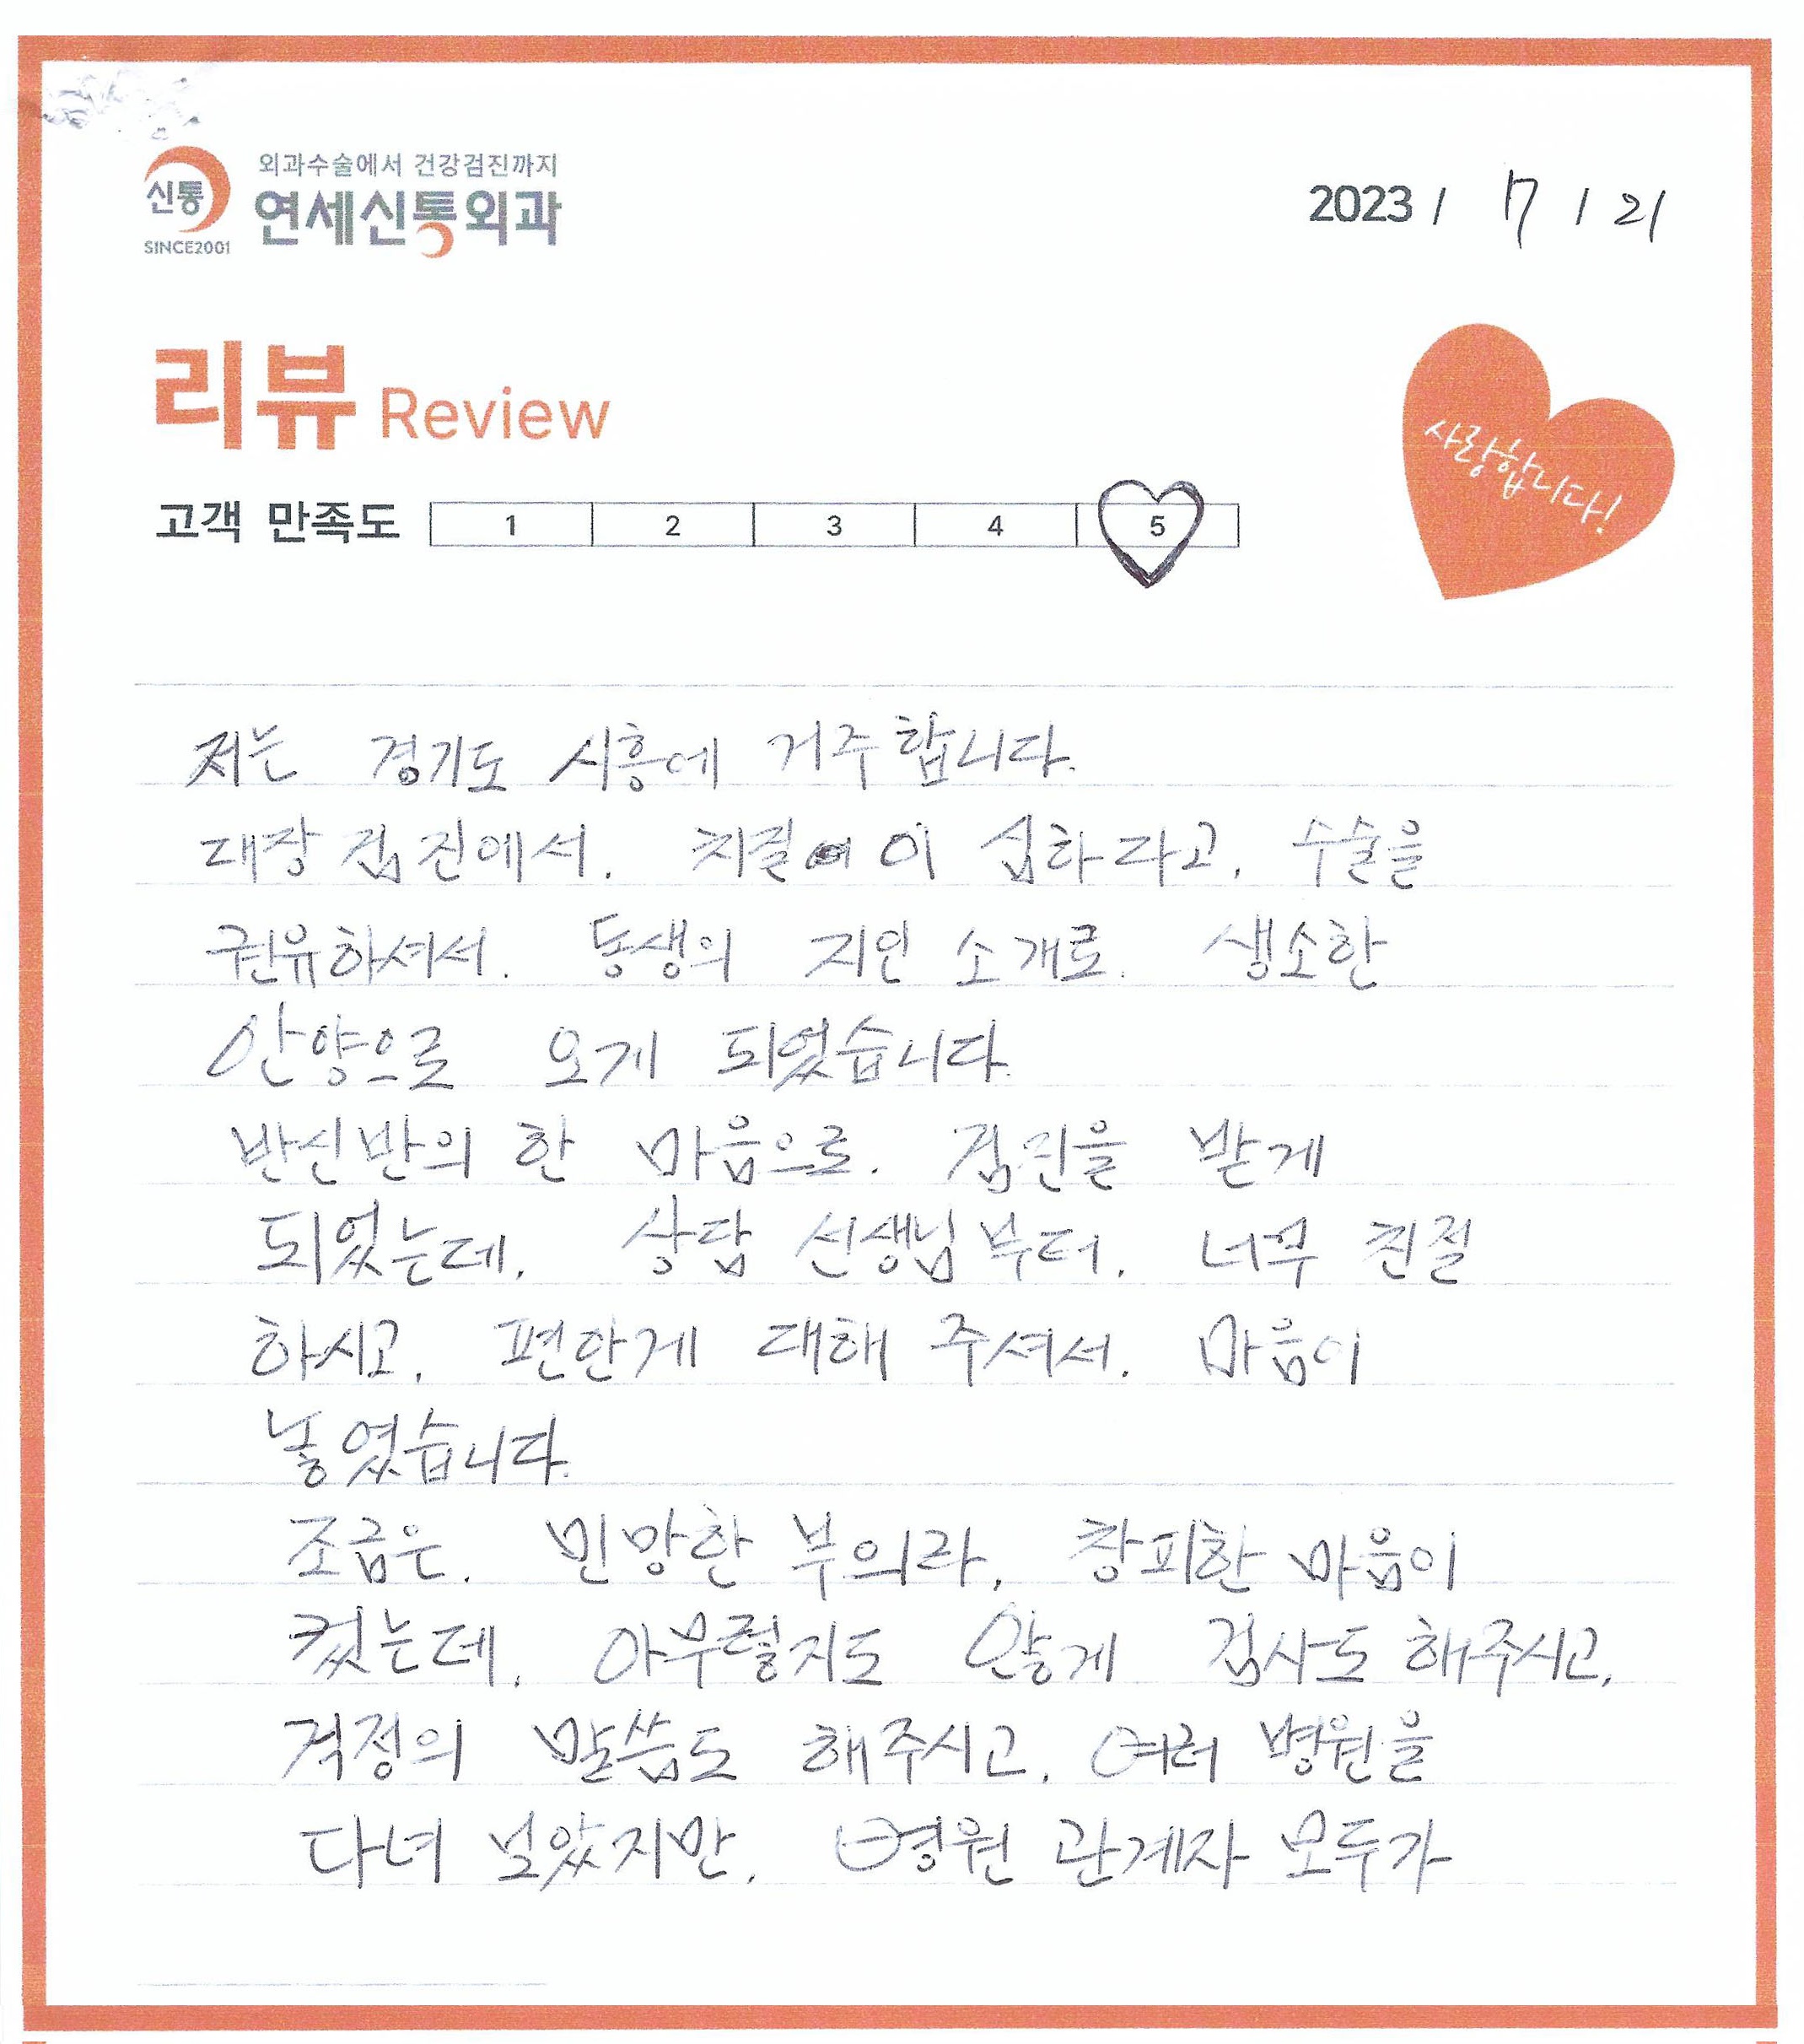 외과수술에서 건강검진까지
신통
연세신통외과
SINCE2001
2023 / 7 / 21
리뷰 Review
사랑합니다!
고객 만족도 1 2 3 4 5
저는 경기도 시흥에 거주합니다.
대장 검진에서. 치질이 심하다고. 수술을
권유하셔서. 동생의 지인 소개로. 생소한
안양으로 오게 되었습니다.
반신반의 한 마음으로. 검진을 받게
되었는데. 상담 선생님부터. 너무 친절
하시고. 편안게 대해 주셔서. 마음이
놓였습니다.
조금은. 민망한 부의라. 창피한 마음이
컸는데. 아무렇지도 않게 검사도 해주시고.
걱정의 말씀도 해주시고. 여러 병원을
다녀 보았지만. 병원 관계자 모두가